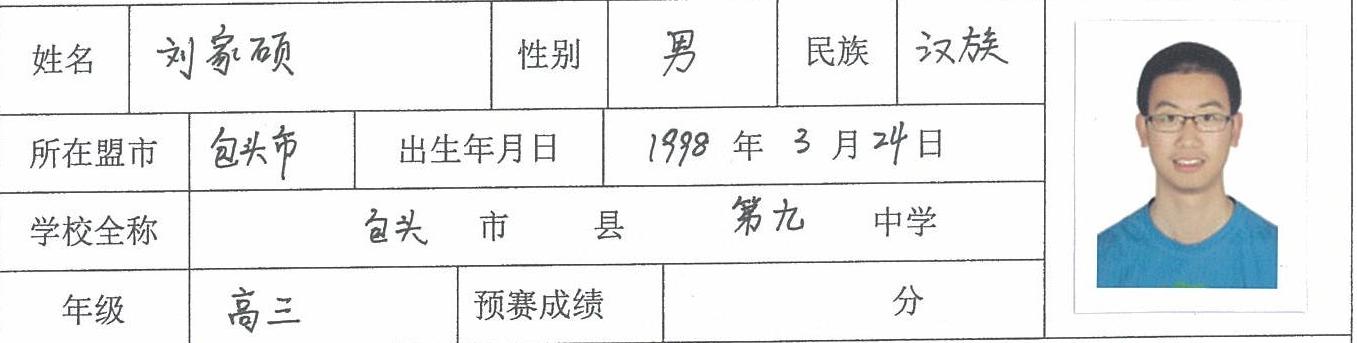 姓名 刘家硕 性别 男 民族 汉族
所在盟市 包头市 出生年月日 1998 年 3 月 24 日
学校全称 包头 市 县 第九 中学
年级 高三 预赛成绩 分